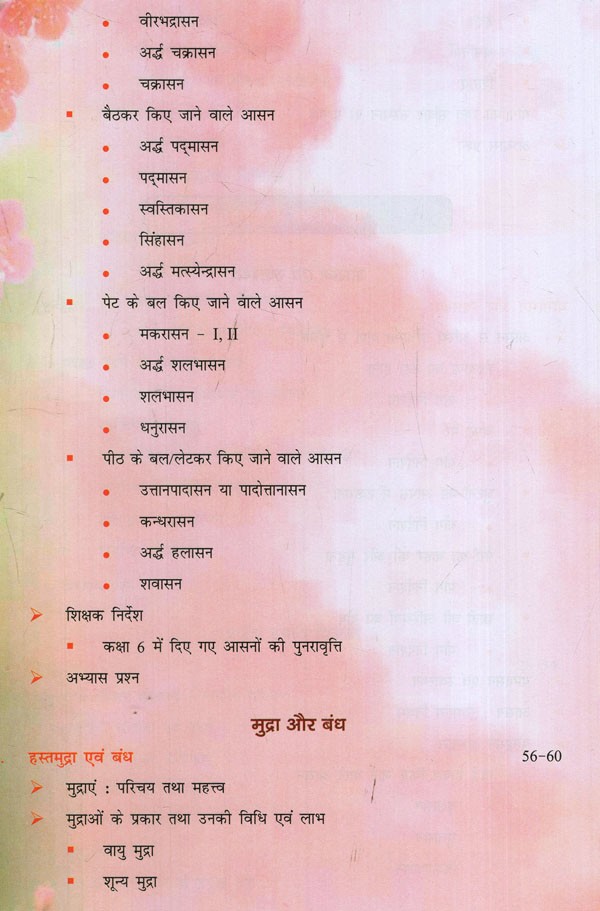 • वीरभद्रासन
• अर्द्ध चक्रासन
• चक्रासन
▪ बैठकर किए जाने वाले आसन
• अर्द्ध पद्मासन
• पद्मासन
• स्वस्तिकासन
• सिंहासन
• अर्द्ध मत्स्येन्द्रासन
▪ पेट के बल किए जाने वाले आसन
• मकरासन – I, II
• अर्द्ध शलभासन
• शलभासन
• धनुरासन
▪ पीठ के बल/लेटकर किए जाने वाले आसन
• उत्तानपादासन या पादोत्तानासन
• कन्धरासन
• अर्द्ध हलासन
• शवासन
➢ शिक्षक निर्देश
▪ कक्षा 6 में दिए गए आसनों की पुनरावृत्ति
➢ अभ्यास प्रश्न
मुद्रा और बंध
हस्तमुद्रा एवं बंध 56-60
➢ मुद्राएं : परिचय तथा महत्त्व
➢ मुद्राओं के प्रकार तथा उनकी विधि एवं लाभ
▪ वायु मुद्रा
▪ शून्य मुद्रा